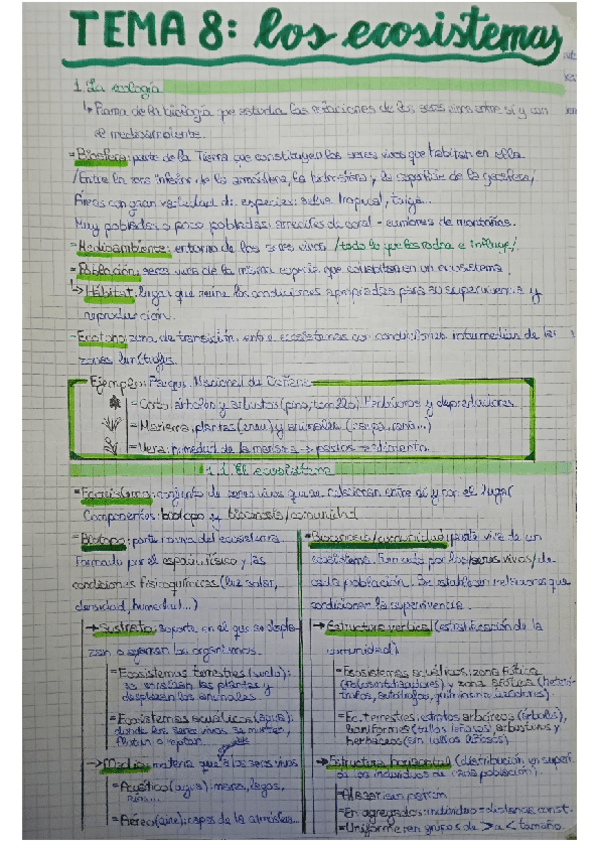 TEMA 8: los ecosistemas
1. La ecología
↳ Rama de la biología que estudia las relaciones de los seres vivos entre sí y con
el medioambiente.
=Biosfera: parte de la Tierra que constituyen los seres vivos que habitan en ella
/Entre la zona inferior de la atmósfera, la hidrosfera y la superficie de la geosfera/
Áreas con gran variedad de especies: selva tropical, taiga...
Muy pobladas o poco pobladas: arrecifes de coral - cumbres de montañas.
=Medioambiente: entorno de los seres vivos /todo lo que los rodea e influye/.
=Población: seres vivos de la misma especie que cohabitan en un ecosistema
↳ Hábitat: lugar que reúne las condiciones apropiadas para su supervivencia y
reproducción.
=Ecotono: zona de transición entre ecosistemas con condiciones intermedias de las
zonas
Ejemplo: Parque Nacional de Doñana
=Coto: árboles y arbustos (pino, tomillo). Herbívoros y depredadores
=Marisma: plantas y animales
=Vera: humedad de la marisma → pastos → alimento.
1.1. El ecosistema
=Ecosistema: conjunto de seres vivos que se relacionan entre sí y con el lugar
Componentes: biotopo y biocenosis/comunidad
=Biotopo: parte no viva del ecosistema.
Formado por el espacio físico y las
condiciones fisicoquímicas (luz solar,
densidad, humedad...)
→Sustrato: soporte en el que se despla-
zan o agarran los organismos.
=Ecosistemas terrestres (suelo):
se enraízan las plantas y
desplazan los animales.
=Ecosistemas acuáticos (agua):
donde los seres vivos se mueven,
flotan o reptan.
→Medio: materia que a los seres vivos
=Acuático (agua): mares, lagos,
ríos...
=Aéreo (aire): capas de la atmósfera...
=Biocenosis/comunidad: parte viva de un
ecosistema. Formada por los seres vivos/de
cada población. Se establecen relaciones que
condicionan la supervivencia.
→Estructura vertical (estratificación de la
comunidad)
=Ecosistemas acuáticos: zona fótica
(fotosintetizadores) y zona afótica (heteró-
trofos,
=Ec. terrestres: estratos arbóreos (árboles),
(tallos leñosos), arbustivos y
herbáceos (sin tallos leñosos)
→Estructura horizontal (distribución en superfi.
de los individuos de cada población)
=Al azar: sin patrón
=En agregados: individuos distanc. const.
=Uniforme: en grupos de > a < tamaño.